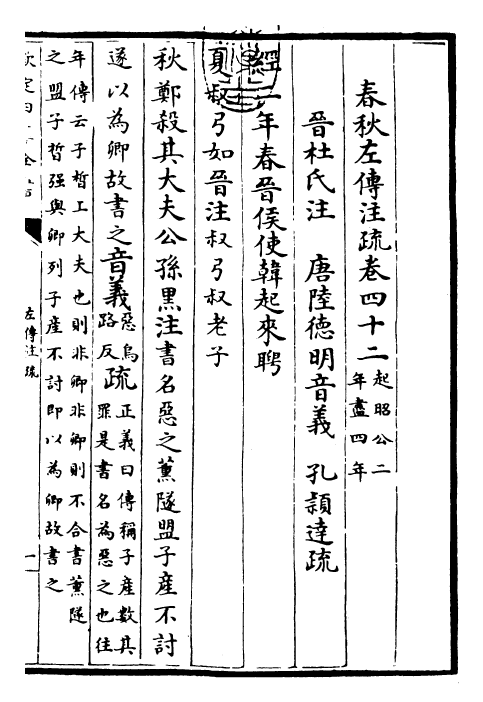 春秋左傳注疏卷四十二
起昭公二
年盡四年
晉杜氏注　唐陸德明音義　孔頴達疏
經二年春晉侯使韓起來聘
夏叔弓如晉注叔弓叔老子
秋鄭殺其大夫公孫黑注書名惡之薰隧盟子產不討
遂以為卿故書之音義
惡烏
路反
疏
正義曰傳稱子產數其
罪是書名為惡之也往
年傳云子晳上大夫也則非卿非卿則不合書薰隧
之盟子晳强與卿列子產不討即以為卿故書之
左傳注疏
一